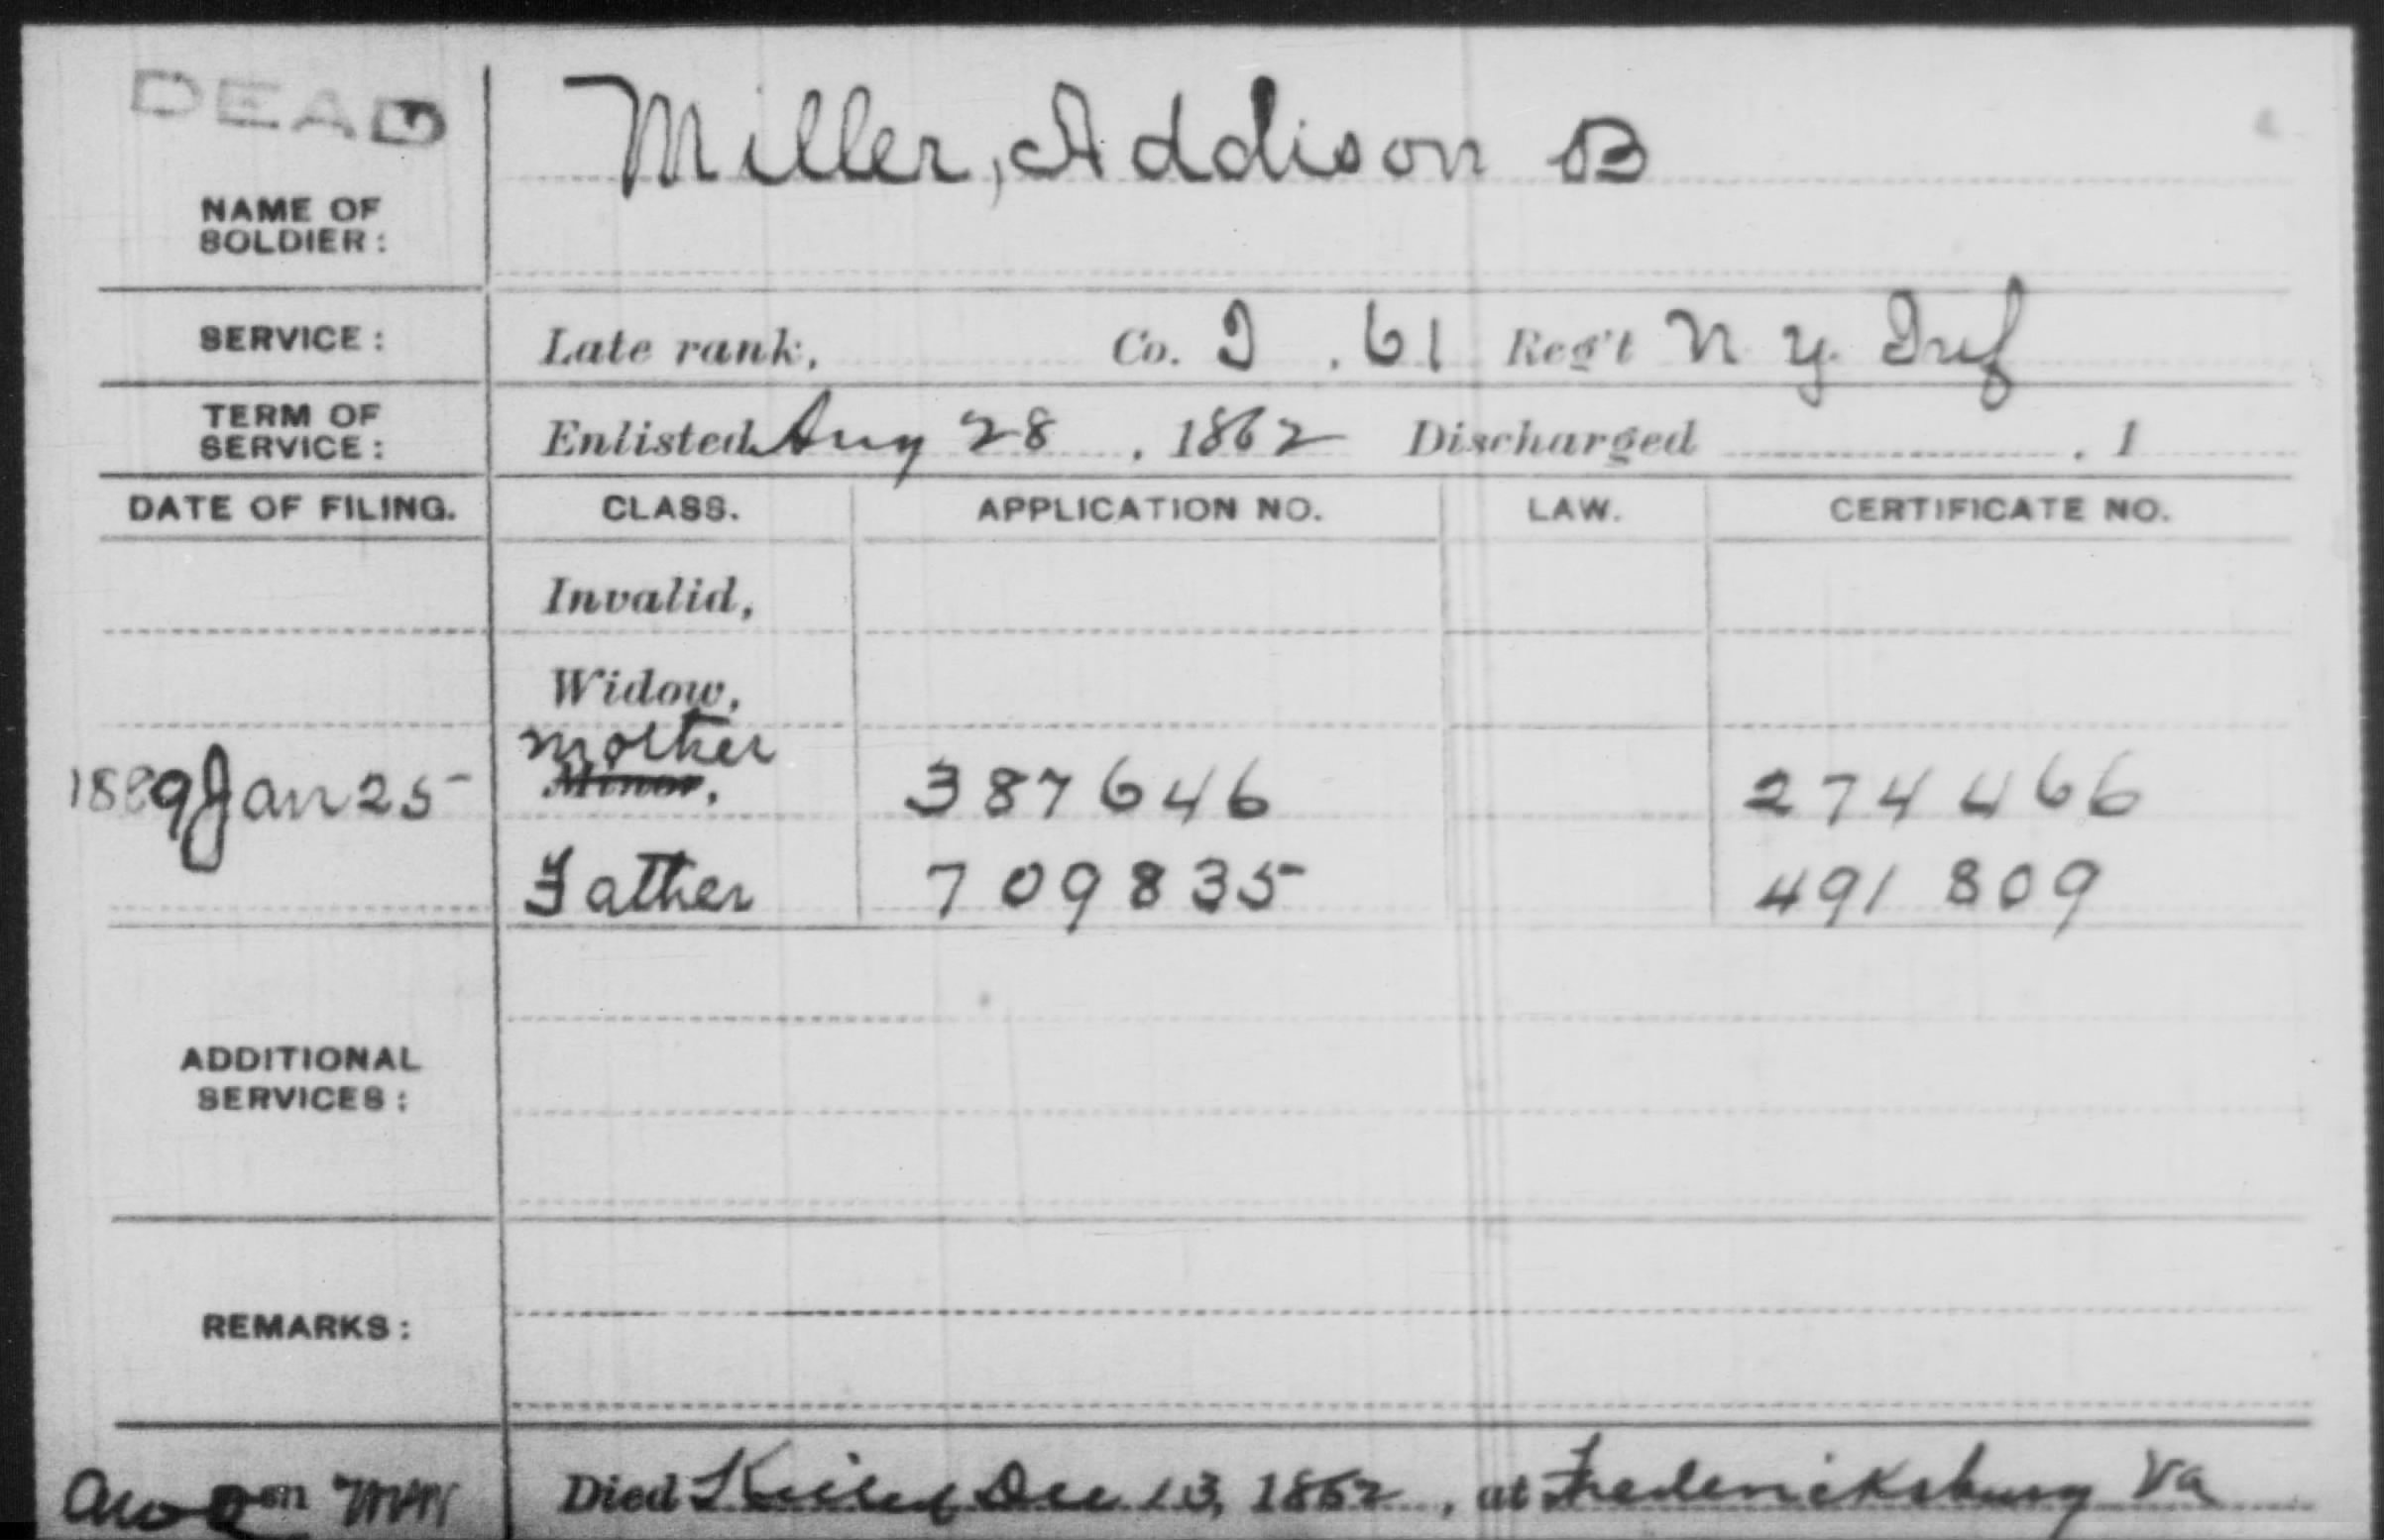 DEAD
Miller, Addison B
NAME OF
SOLDIER:
SERVICE: Late rank, Co. I, 61 Reg't N Y. Inf
TERM OF
SERVICE: Enlisted Aug 28, 1862 Discharged , 1
DATE OF FILING. CLASS. APPLICATION NO. LAW. CERTIFICATE NO.
Invalid,
Widow,
Mother
1889 Jan 25 Minor, 387646 274466
Father 709835 491809
ADDITIONAL
SERVICES:
REMARKS:
Died Killed Dec 13, 1862, at Fredericksburg Va